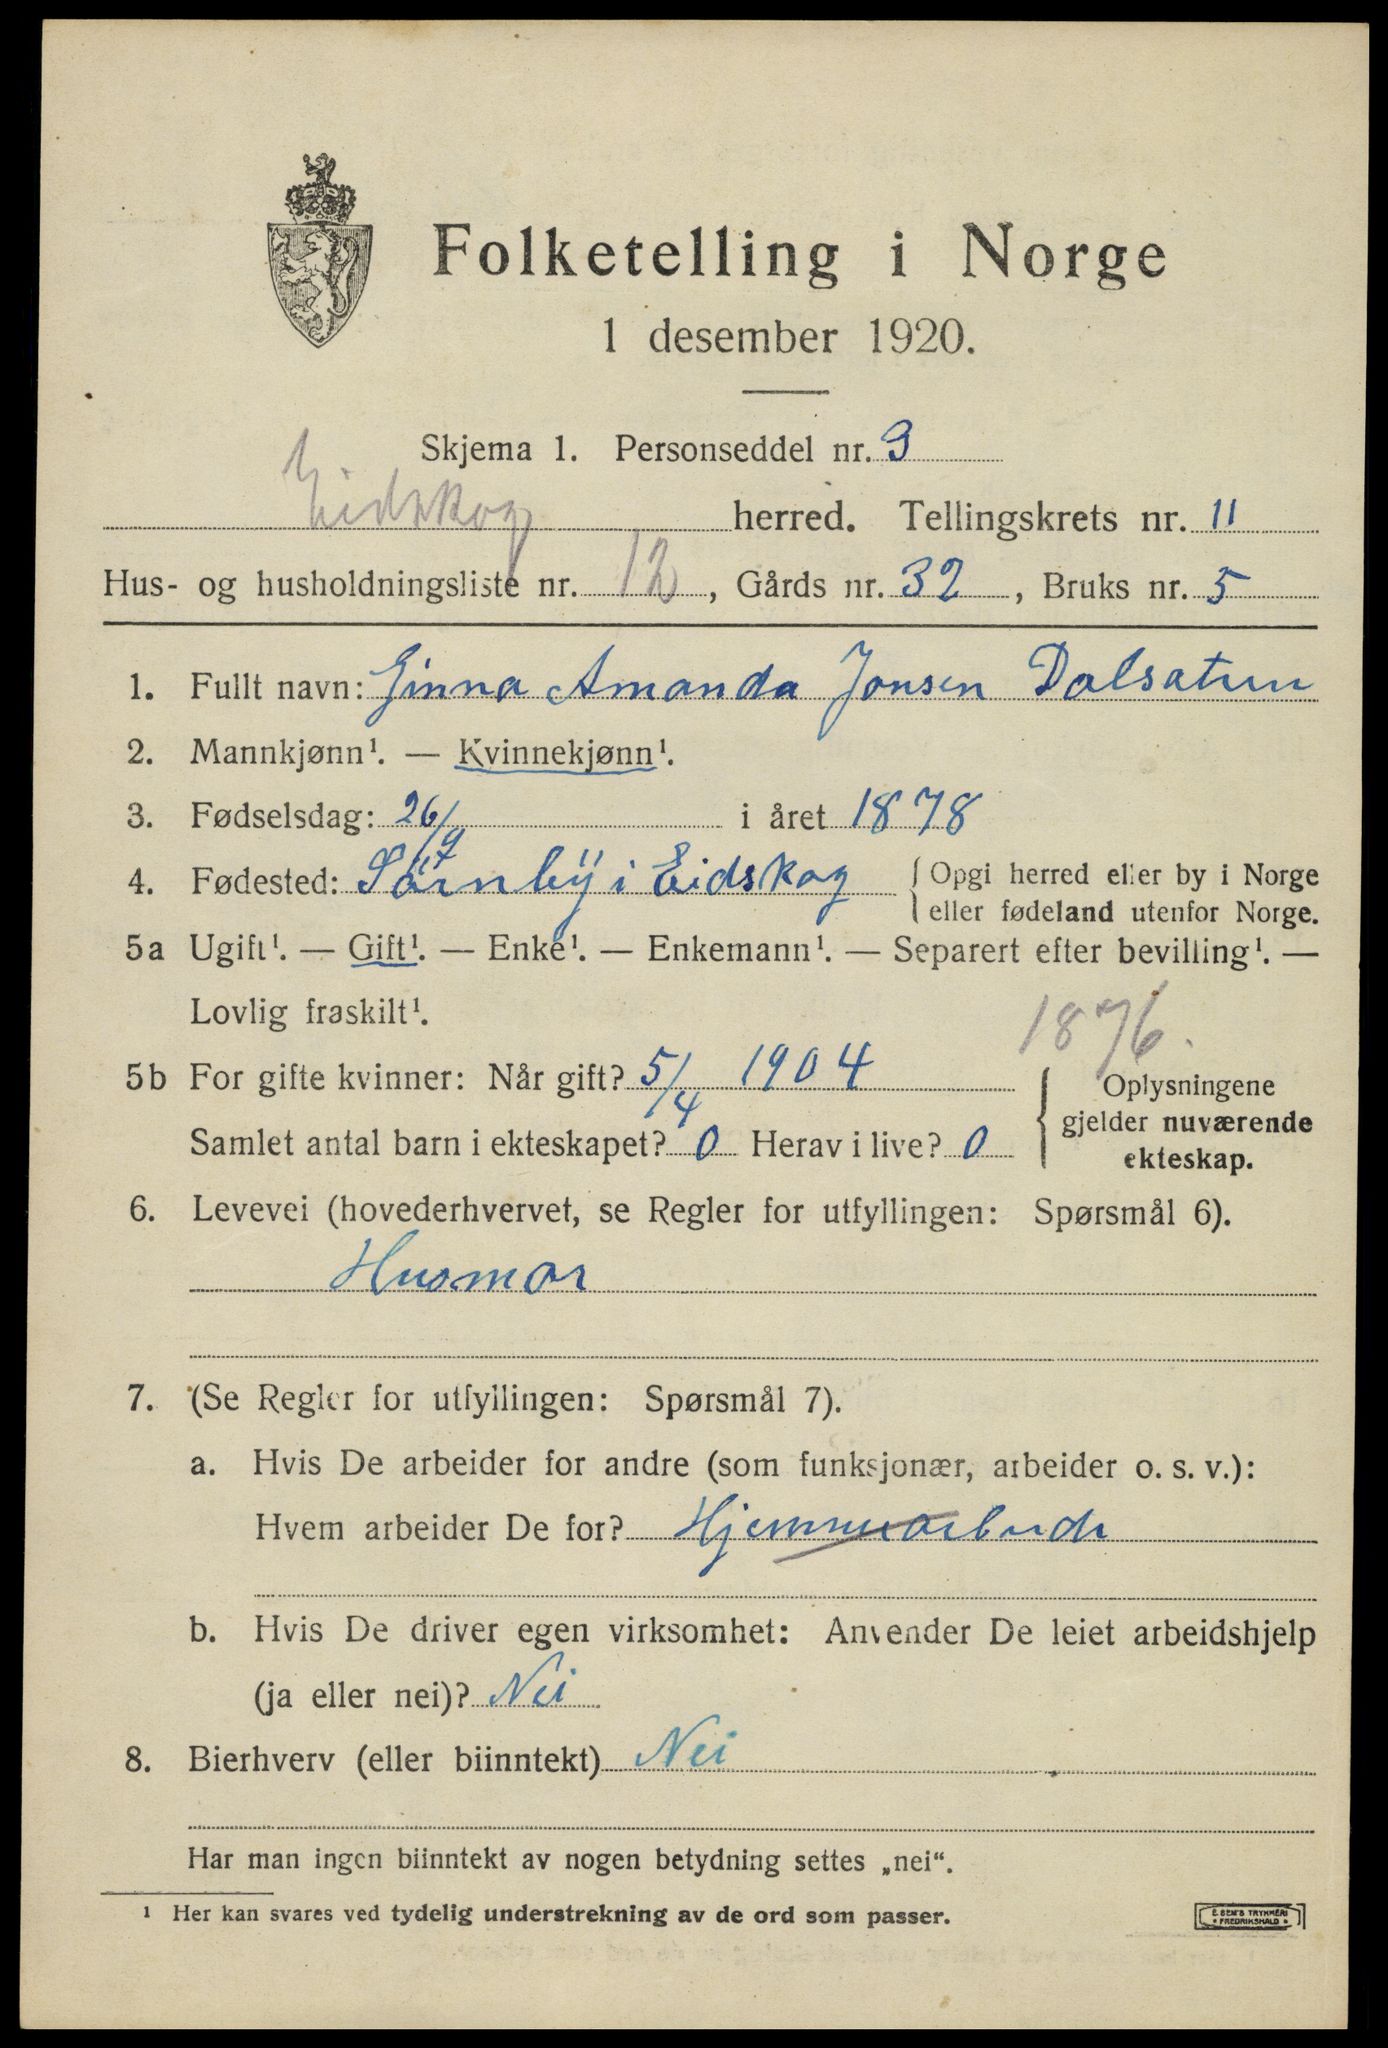 Folketelling i Norge
1 desember 1920.
Skjema 1. Personseddel nr. 3
Eidskog herred. Tellingskrets nr. 11
Hus- og husholdningsliste nr. 12, Gårds nr. 32, Bruks nr. 5
1. Fullt navn: Ginna Amanda Jonsen Dalsatrin
2. Mannkjønn¹. — Kvinnekjønn¹.
3. Fødselsdag: 26/9 i året 1878
4. Fødested: Sörnbÿ i Eidskog { Opgi herred eller by i Norge
eller fødeland utenfor Norge.
5a Ugift¹. — Gift¹. — Enke¹. — Enkemann¹. — Separert efter bevilling¹. —
Lovlig fraskilt¹.
1876.
5b For gifte kvinner: Når gift? 5/4 1904
Samlet antal barn i ekteskapet? 0 Herav i live? 0
{ Oplysningene
gjelder nuværende
ekteskap.
6. Levevei (hovederhvervet, se Regler for utfyllingen: Spørsmål 6).
Husmor
7. (Se Regler for utfyllingen: Spørsmål 7).
a. Hvis De arbeider for andre (som funksjonær, arbeider o. s. v.):
Hvem arbeider De for? Hjemmearbeide
b. Hvis De driver egen virksomhet: Anvender De leiet arbeidshjelp
(ja eller nei)? Nei
8. Bierhverv (eller biinntekt) Nei
Har man ingen biinntekt av nogen betydning settes „nei“.
¹ Her kan svares ved tydelig understrekning av de ord som passer.
E. SEM'S TRYKKERI
• FREDRIKSHALD •